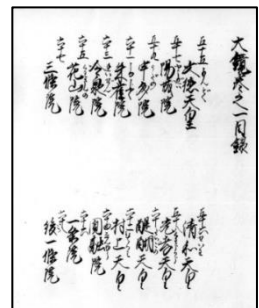 大鏡巻之一目録
五十五 文徳天皇 五十六 清和天皇
五十七 陽成院 五十八 光孝天皇
五十九 宇多院 六十 醍醐天皇
六十一 朱雀院 六十二 村上天皇
六十三 冷泉院 六十四 圓融院
六十五 花山院 六十六 一条院
六十七 三條院 六十八 後一條院